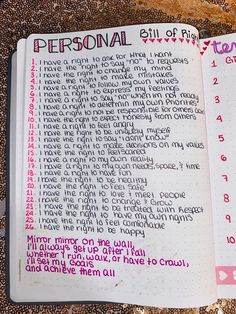 PERSONAL Bill of Rig
1. I have a right to ask for what I want
2. I have the right to say "no" to requests
3. I have the right to change my mind
4. I have the right to make mistakes
5. I have a right to follow my own values
6. I have a right to express my feelings
7. I have a right to say "no" when im not ready
8. I have a right to determin my own priorities
9. I have a right to not be responsible for others
10. I have a right to expect honesty from others
11. I have a right to feel angry
12. I have the right to be uniquely myself
13. I have the right to feel scared
14. I have the right to say "I don't know"
15. I have a right to make decisions on my values
16. I have a right to my own reality
17. I have a right to my own needs, space, & time
18. I have the right to have fun
19. I have the right to be healthy
20. I have the right to feel safe
21. I have the right to love & meet people
22. I have the right to change & grow
23. I have the right to be treated with respect
24. I have the right to have my own rights
25. I have the right to feel comfortable
26. I have the right to be happy
Mirror mirror on the wall,
I'll always get up after I fall
whether I run, walk, or have to crawl,
I'll set my goals
and achieve them all
TE
1
2
3
4
5
6
7
8
9
10